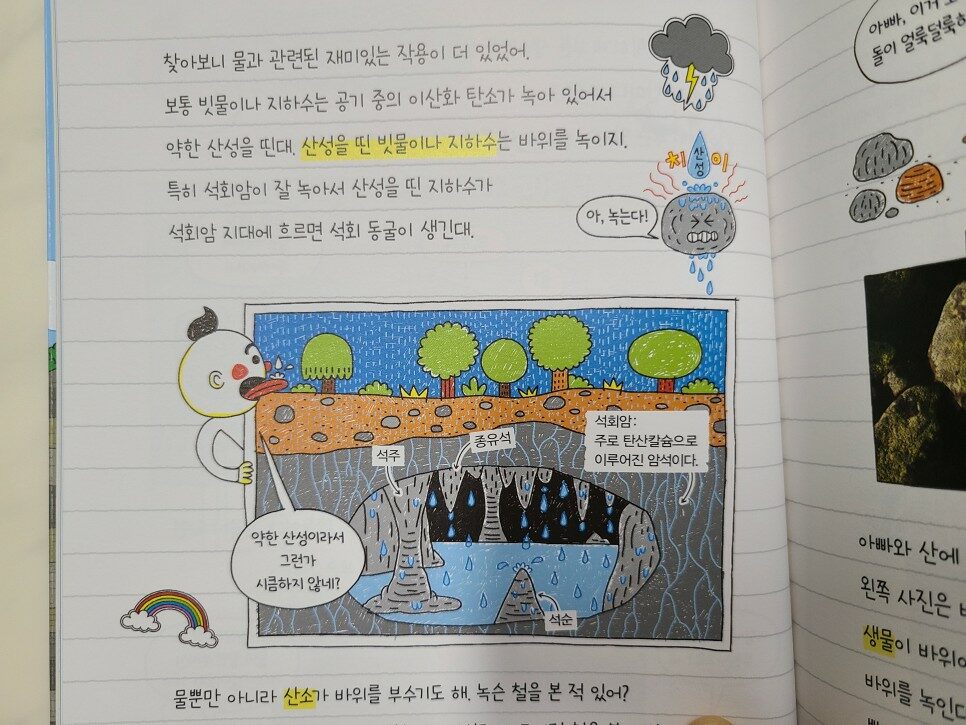 찾아보니 물과 관련된 재미있는 작용이 더 있었어.
보통 빗물이나 지하수는 공기 중의 이산화 탄소가 녹아 있어서
약한 산성을 띤대. 산성을 띤 빗물이나 지하수는 바위를 녹이지.
특히 석회암이 잘 녹아서 산성을 띤 지하수가
석회암 지대에 흐르면 석회 동굴이 생긴대.
치 산성 이
아, 녹는다!
석회암:
주로 탄산칼슘으로
이루어진 암석이다.
종유석
석주
약한 산성이라서
그런가
시큼하지 않네?
석순
물뿐만 아니라 산소가 바위를 부수기도 해. 녹슨 철을 본 적 있어?
아빠, 이거
돌이 얼룩덜룩
아빠와 산에
왼쪽 사진은
생물이 바위
바위를 녹인다